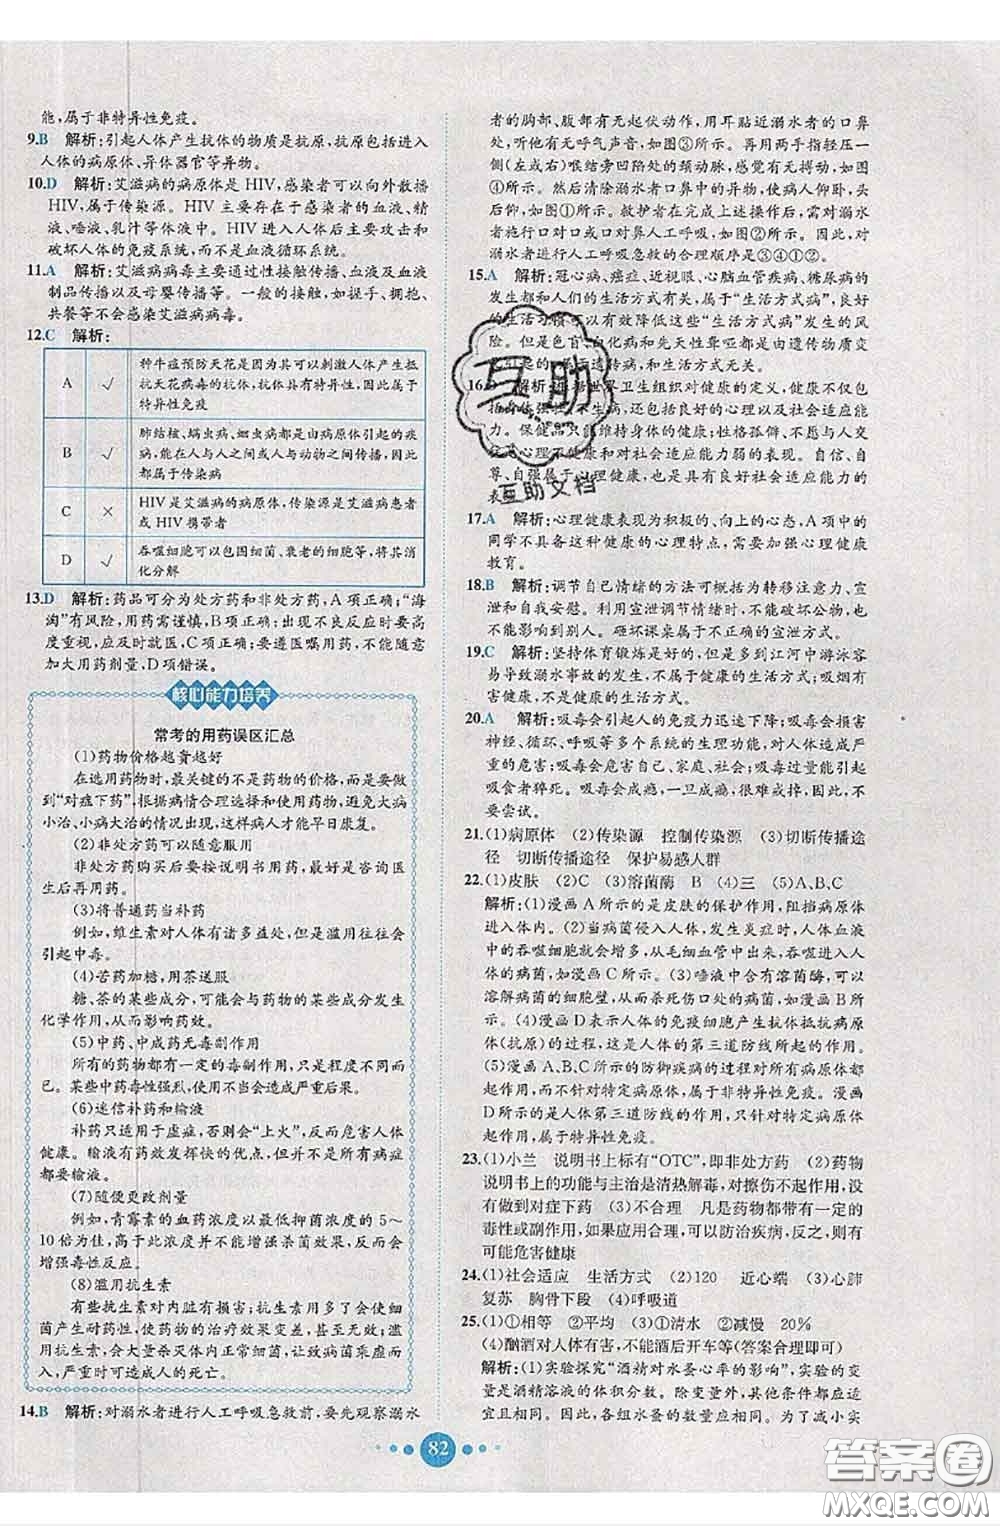 能,属于非特异性免疫。
9.B 解析:引起人体产生抗体的物质是抗原,抗原包括进入
人体的病原体、异体器官等异物。
10.D 解析:艾滋病的病原体是 HIV,感染者可以向外散播
HIV,属于传染源。HIV 主要存在于感染者的血液、精
液、唾液、乳汁等体液中。HIV 进入人体后主要攻击和
破坏人体的免疫系统,而不是血液循环系统。
11.A 解析:艾滋病病毒主要通过性接触传播、血液及血液
制品传播以及母婴传播等。一般的接触,如握手、拥抱、
共餐等不会感染艾滋病病毒。
12.C 解析:
A √ 种牛痘预防天花是因为其可以刺激人体产生抵
抗天花病毒的抗体,抗体具有特异性,因此属于
特异性免疫
B √ 肺结核、蛲虫病、蛔虫病都是由病原体引起的疾
病,能在人与人之间或人与动物之间传播,因此
属于传染病
C × HIV 是艾滋病的病原体,传染源是艾滋病患者
或 HIV 携带者
D √ 吞噬细胞可以包围细菌、衰老的细胞等,将其消
化分解
13.D 解析:药品可分为处方药和非处方药,A 项正确;“海
淘”有风险,用药需谨慎,B 项正确;出现不良反应时要高
度重视,应及时就医,C 项正确;要遵医嘱用药,不能随意
加大用药剂量,D 项错误。
核心能力培养
常考的用药误区汇总
(1)药物价格越贵越好
在选用药物时,最关键的不是药物的价格,而是要做
到“对症下药”,根据病情合理选择和使用药物,避免大病
小治、小病大治的情况出现,这样病人才能早日康复。
(2)非处方药可以随意服用
非处方药购买后要按说明书用药,最好是咨询医
生后再用药。
(3)将普通药当补药
例如,维生素对人体有诸多益处,但是滥用往往会
引起中毒。
(4)苦药加糖,用茶送服
糖、茶的某些成分,可能会与药物的某些成分发生
化学作用,从而影响药效。
(5)中药、中成药无毒副作用
所有的药物都有一定的毒副作用,只是程度不同已
已。某些中药毒性强烈,使用不当会造成严重后果。
(6)迷信补药和输液
补药只适用于虚症,否则会“上火”,影响人体
健康。输液有药效发挥快的优点,但不是所有病症
都要输液。
(7)随便更改剂量
例如,青霉素的血药浓度以最低抑菌浓度的 5~
10 倍为佳,高于此浓度并不能增强杀菌效果,而只能
增强毒性反应。
(8)滥用抗生素
有些抗生素对内脏有损害;抗生素滥用会使细
菌产生耐药性,使药物的治疗效果变差,甚至无效;
滥用抗生素,会大量杀灭体内正常细菌,让致病菌乘
虚而入,严重时可造成人的死亡。
14.B 解析:对溺水者进行人工呼吸急救前,要先观察溺水
者的胸部、腹部有无起伏动作,用耳贴近溺水者的口鼻
处,听有无呼气声音,如图③所示。再用两手指轻压一
侧(左或右)喉结旁凹陷处的颈动脉,感觉有无搏动,如图
④所示。然后清除溺水者口鼻中的异物,使病人仰卧,头
后仰,如图①所示。救护者在完成上述操作后,需对溺水
者施行口对口或口对鼻人工呼吸,如图②所示。因此,对
溺水者进行人工呼吸急救的合理顺序是③④①②。
15.A 解析:冠心病、癌症、近视眼、心脑血管疾病、糖尿病的
发生都和人们的生活方式有关,属于“生活方式病”,良好
的生活习惯可以有效降低这些“生活方式病”发生的风
险。但是色盲、白化病和先天性聋哑都是由遗传物质变
化引起的遗传病,和生活方式无关。
16.D 解析:根据世界卫生组织对健康的定义,健康不仅包
括身体强壮,不生病,还包括良好的心理以及社会适应能
力。保健品只能维持身体的健康;性格孤僻、不与人交
往是心理不健康和对社会适应能力弱的表现。自信、自
尊、自强属于心理健康,也是具有良好社会适应能力的
表现。
17.A 解析:心理健康表现为积极的、向上的心态,A 项中的
同学不具备这种健康的心理特点,需要加强心理健康
教育。
18.B 解析:调节自己情绪的方法可概括为转移注意力、宣
泄和自我安慰。利用宣泄调节情绪时,不能破坏公物,也
不能影响到别人。砸坏课桌属于不正确的宣泄方式。
19.C 解析:坚持体育锻炼是好的,但多人到江河中游泳容
易导致溺水事故的发生,不是健康的生活方式;吸烟有
害健康,不是健康的生活方式。
20.A 解析:吸毒会引起人的免疫力迅速下降;吸毒会损害
神经、循环、呼吸等多个系统的生理功能,对人体造成严
重损伤;吸毒会危害自己、家庭、社会;吸毒过量会引起
吸食者猝死。吸毒会成瘾,一旦成瘾,很难戒除,所以不
要尝试。
21.(1)病原体 (2)传染源 控制传染源 (3)切断传播途
径 切断传播途径 保护易感人群
22.(1)皮肤 (2)C (3)溶菌酶 B (4)三 (5)A、B、C
解析:(1)漫画 A 所示的是皮肤的保护作用,阻挡病原体
进入体内。(2)当病菌侵入人体,发生炎症时,人体血液
中的吞噬细胞就会增多,从毛细血管中出来,吞噬进入人
体的病菌,如漫画 C 所示。(3)唾液中含有溶菌酶,可以
溶解病菌的细胞壁,从而杀死伤口处的病菌,如漫画 B 所
示。(4)漫画 D表示人体的免疫细胞产生抗体抵抗病原体
(抗原)的过程,这是人体的第三道防线所起的作用。
(5)漫画 A、B、C 所示的防御疾病的过程对多种病原体都
起作用,而不针对特定病原体,属于非特异性免疫。漫画
D 所示的是人体第三道防线的作用,只针对特定病原体
起作用,属于特异性免疫。
23.(1)小兰 说明书上标有“OTC”,即非处方药 (2)药物
说明书上的功能与主治是清热解毒,对擦伤不起作用,没
有做到对症下药 (3)不合理 凡是药物都带有一定的
毒性或副作用,如果应用合理,可以防治疾病,反之,则有
可能危害健康
24.(1)社会适应 生活方式 (2)120 近心端 (3)心肺
复苏 胸骨下段 (4)呼吸道
25.(1)①相等 ②平均 (3)①清水 ②减慢 20%
(4)酗酒对人体有害,不能酒后开车等(答案合理即可)
解析:(1)实验探究“酒精对水蚤心率的影响”,实验的变
量是酒精溶液的体积分数。除变量外,其他条件都应适
宜且相同。因此,各组水蚤的数量应相同。为了减小实
82
互助
互助文档
答案圈
MXQE.COM